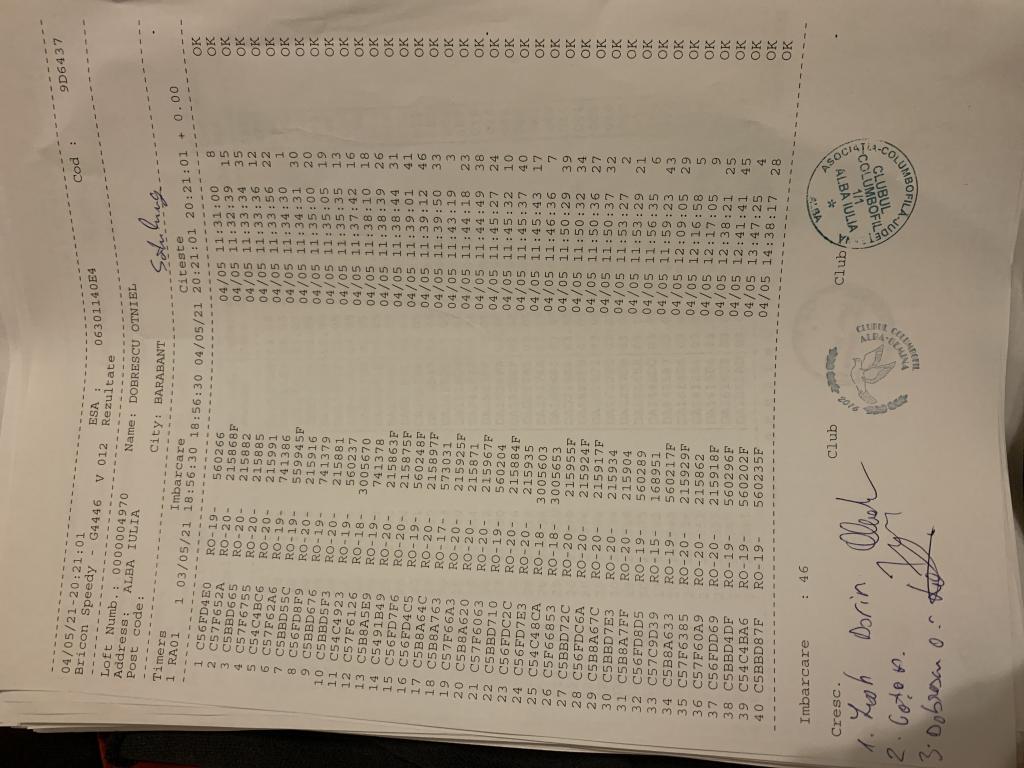 04/05/21-20:21:01
Bricon Speedy - G4446 V 012 ESA : Cod : 9D6437
Loft Numb.: 00000004970 Rezultate 06301140E4
Address: ALBA IULIA Name: DOBRESCU OTNIEL
Post code: City: BARABANT
Timers Imbarcare Citeste
1 RA01 1 03/05/21 18:56:30 18:56:30 04/05/21 20:21:01 20:21:01 + 0.00
1 C56FD4E0 RO-19- 560266 04/05 11:31:00 8 OK
2 C57F652A RO-20- 215868F 04/05 11:32:39 15 OK
3 C5BBD665 RO-20- 215882 04/05 11:33:34 35 OK
4 C57F6755 RO-20- 215885 04/05 11:33:36 12 OK
5 C54C4BC6 RO-20- 215991 04/05 11:33:56 22 OK
6 C57F62A6 RO-19- 741386 04/05 11:34:30 1 OK
7 C5BBD55C RO-19- 559945F 04/05 11:34:31 30 OK
8 C56FD8F9 RO-20- 215916 04/05 11:35:00 20 OK
9 C5BBD676 RO-19- 741379 04/05 11:35:05 19 OK
10 C5BBD5F3 RO-20- 215881 04/05 11:35:35 13 OK
11 C54C4923 RO-19- 560237 04/05 11:37:42 16 OK
12 C57F6126 RO-18- 3005670 04/05 11:38:10 18 OK
13 C5B8A5E9 RO-19- 741378 04/05 11:38:39 26 OK
14 C491B849 RO-20- 215863F 04/05 11:38:44 31 OK
15 C56FD7F6 RO-20- 215875F 04/05 11:39:01 41 OK
16 C56FD4C5 RO-19- 560248F 04/05 11:39:12 46 OK
17 C5B8A64C RO-20- 215897F 04/05 11:39:51 33 OK
18 C5B8A763 RO-17- 573031 04/05 11:43:19 3 OK
19 C57F66A3 RO-20- 215925F 04/05 11:44:18 23 OK
20 C5B8A620 RO-20- 215871 04/05 11:44:49 38 OK
21 C57F6063 RO-20- 215967F 04/05 11:45:27 24 OK
22 C5BBD710 RO-19- 560204 04/05 11:45:32 10 OK
23 C56FDC2C RO-20- 215884F 04/05 11:45:37 40 OK
24 C56FD7E3 RO-20- 215935 04/05 11:45:43 17 OK
25 C54C48CA RO-18- 3005603 04/05 11:46:36 7 OK
26 C5F66853 RO-18- 3005653 04/05 11:50:29 39 OK
27 C5BBD72C RO-20- 215955F 04/05 11:50:32 34 OK
28 C56FDC6A RO-20- 215924F 04/05 11:50:36 27 OK
29 C5B8A67C RO-20- 215917F 04/05 11:50:37 32 OK
30 C5BBD7E3 RO-20- 215934 04/05 11:53:27 2 OK
31 C5B8A7FF RO-20- 215904 04/05 11:53:29 21 OK
32 C56FD8D5 RO-19- 560289 04/05 11:56:35 6 OK
33 C57C9D39 RO-15- 168951 04/05 11:59:23 43 OK
34 C5B8A633 RO-19- 560217F 04/05 12:09:05 29 OK
35 C57F6385 RO-20- 215929F 04/05 12:16:58 5 OK
36 C57F60A9 RO-20- 215862 04/05 12:17:05 9 OK
37 C56FDD69 RO-20- 215918F 04/05 12:38:21 25 OK
38 C5BBD4DF RO-19- 560296F 04/05 12:41:41 45 OK
39 C54C4BA6 RO-19- 560202F 04/05 13:47:25 4 OK
40 C5BBD87F RO-19- 560235F 04/05 14:38:17 28 OK
Imbarcare : 46
Cresc. Club Club
1. Dorin
2.
3. Dobrescu O.
CLUBUL COLUMBOFIL
ALBA-GEMINA
2016
ASOCIATIA COLUMBOFILA JUDET
ALBA
CLUBUL
COLUMBOFIL
1/1
ALBA IULIA